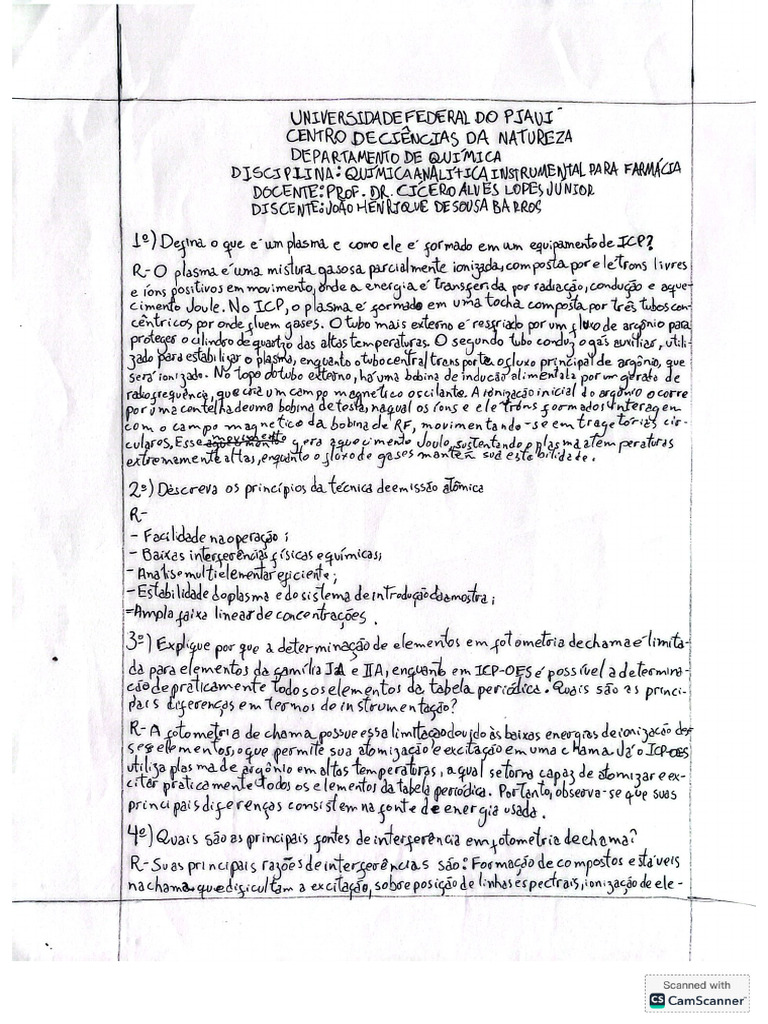 UNIVERSIDADE FEDERAL DO PIAUÍ
CENTRO DE CIÊNCIAS DA NATUREZA
DEPARTAMENTO DE QUÍMICA
DISCIPLINA: QUÍMICA ANALÍTICA INSTRUMENTAL PARA FARMÁCIA
DOCENTE: PROF. DR. CICERO ALVES LOPES JUNIOR
DISCENTE: JOÃO HENRIQUE DE SOUSA BARROS
1º) Defina o que é um plasma e como ele é formado em um equipamento de ICP?
R- O plasma é uma mistura gasosa parcialmente ionizada, composta por eletrons livres
e íons positivos em movimento, onde a energia é transferida por radiação, condução e aque-
cimento Joule. No ICP, o plasma é formado em uma tocha composta por três tubos con-
cêntricos por onde fluem gases. O tubo mais externo é resfriado por um fluxo de argônio para
proteger o cilindro de quartzo das altas temperaturas. O segundo tubo conduz o gás auxiliar, utili-
zado para estabilizar o plasma, enquanto o tubo central transporta o fluxo principal de argônio, que
será ionizado. No topo do tubo externo, há uma bobina de indução alimentada por um gerador de
radiofrequência, que cria um campo magnético oscilante. A ionização inicial do argônio ocorre
por uma centelha de uma bobina de tesla, na qual os íons e eletrons formados interagem
com o campo magnético da bobina de RF, movimentando-se em trajetórias cir-
culares. Esse movimento gera aquecimento Joule, sustentando o plasma a temperaturas
extremamente altas, enquanto o fluxo de gases mantém sua estabilidade.
2º) Descreva os princípios da técnica de emissão atômica
R-
- Facilidade na operação;
- Baixas interferências físicas e químicas;
- Analise multielementar eficiente;
- Estabilidade do plasma e do sistema de introdução da amostra;
- Ampla faixa linear de concentrações.
3º) Explique por que a determinação de elementos em fotometria de chama é limita-
da para elementos da família IA e IIA, enquanto em ICP-OES é possível a determina-
ção de praticamente todos os elementos da tabela periódica. Quais são as princi-
pais diferenças em termos de instrumentação?
R- A fotometria de chama possue essa limitação devido às baixas energias de ionização des-
ses elementos, o que permite sua atomização e excitação em uma chama. Já o ICP-OES
utiliza plasma de argônio em altas temperaturas, a qual se torna capaz de atomizar e ex-
citar praticamente todos os elementos da tabela periódica. Portanto, observa-se que suas
principais diferenças consistem na fonte de energia usada.
4º) Quais são as principais fontes de interferência em fotometria de chama?
R- Suas principais razões de interferências são: Formação de compostos estáveis
na chama que dificultam a excitação, sobreposição de linhas espectrais, ionização de ele-
Scanned with
CS CamScanner